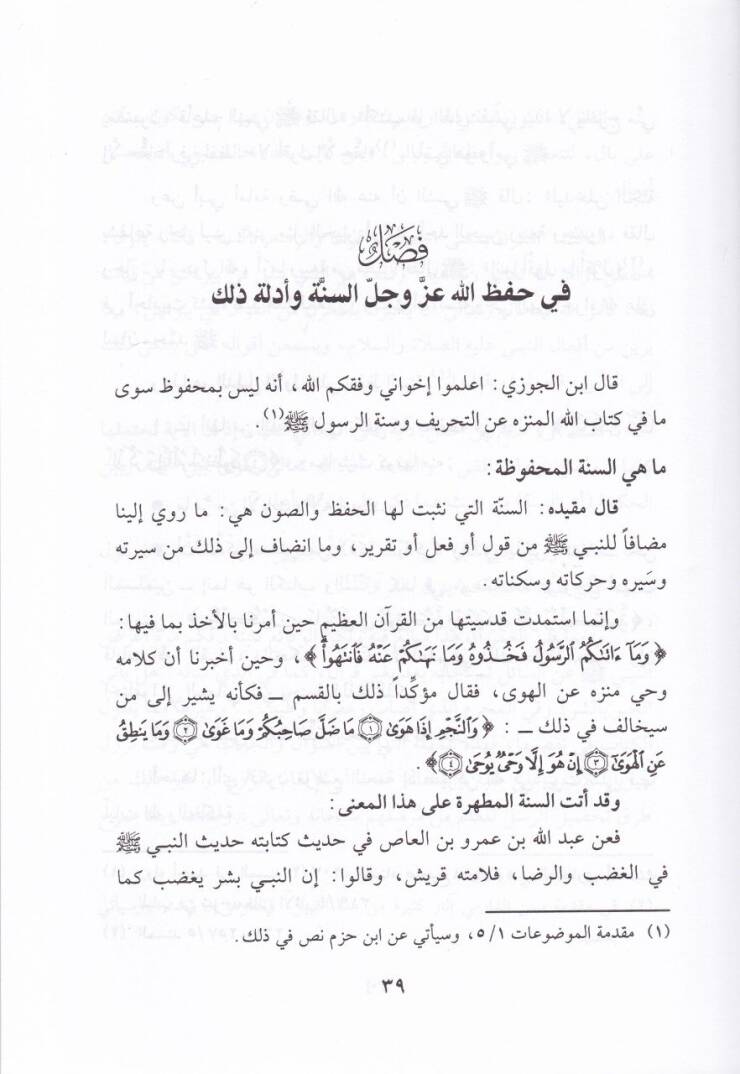 فصل
في حفظ الله عزَّ وجلّ السنَّة وأدلة ذلك
قال ابن الجوزي: اعلموا إخواني وفقكم الله، أنه ليس بمحفوظ سوى
ما في كتاب الله المنزه عن التحريف وسنة الرسول ﷺ(١).
ما هي السنة المحفوظة:
قال مقيده: السنّة التي نثبت لها الحفظ والصون هي: ما روي إلينا
مضافاً للنبي ﷺ من قول أو فعل أو تقرير، وما انضاف إلى ذلك من سيرته
وسَيره وحركاته وسكناته.
وإنما استمدت قدسيتها من القرآن العظيم حين أمرنا بالأخذ بما فيها:
﴿وَمَا ءَاتَىٰكُمُ ٱلرَّسُولُ فَخُذُوهُ وَمَا نَهَىٰكُمْ عَنْهُ فَٱنتَهُوا۟﴾، وحين أخبرنا أن كلامه
وحي منزه عن الهوى، فقال مؤكِّداً ذلك بالقسم ــ فكأنه يشير إلى من
سيخالف في ذلك ــ : ﴿وَٱلنَّجْمِ إِذَا هَوَىٰ ١ مَا ضَلَّ صَاحِبُكُمْ وَمَا غَوَىٰ ٢ وَمَا يَنطِقُ
عَنِ ٱلْهَوَىٰٓ ٣ إِنْ هُوَ إِلَّا وَحْىٌ يُوحَىٰ ٤﴾.
وقد أتت السنة المطهرة على هذا المعنى:
فعن عبد الله بن عمرو بن العاص في حديث كتابته حديث النبي ﷺ
في الغضب والرضا، فلامته قريش، وقالوا: إن النبي بشر يغضب كما
(١) مقدمة الموضوعات ٥/١، وسيأتي عن ابن حزم نص في ذلك.
٣٩